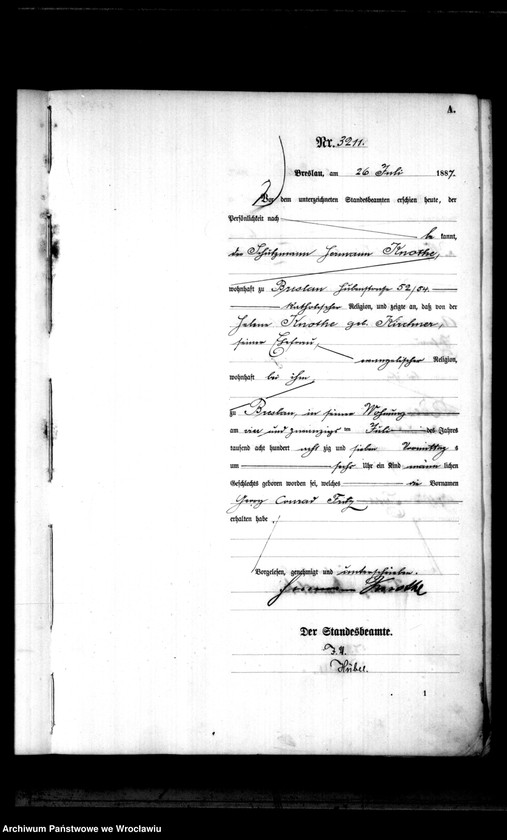 A.
Nr. 3211.
Breslau, am 26 Juli 1887.
Vor dem unterzeichneten Standesbeamten erschien heute, der
Persönlichkeit nach
be kannt,
der Schutzmann Hermann Knothe,
wohnhaft zu Breslau Hubenstraße 52/54
katholischer Religion, und zeigte an, daß von der
Helene Knothe geb. Kirchner,
seiner Ehefrau,
evangelischer Religion,
wohnhaft bei ihm
zu Breslau, in seiner Wohnung
am vier und zwanzigsten Juli des Jahres
tausend acht hundert acht zig und sieben Vormittag s
um sechs Uhr ein Kind männ lichen
Geschlechts geboren worden sei, welches die Vornamen
Georg Conrad Fritz
erhalten habe.
Vorgelesen, genehmigt und unterschrieben.
Hermann Knothe
Der Standesbeamte.
J. V.
1
Archiwum Państwowe we Wrocławiu